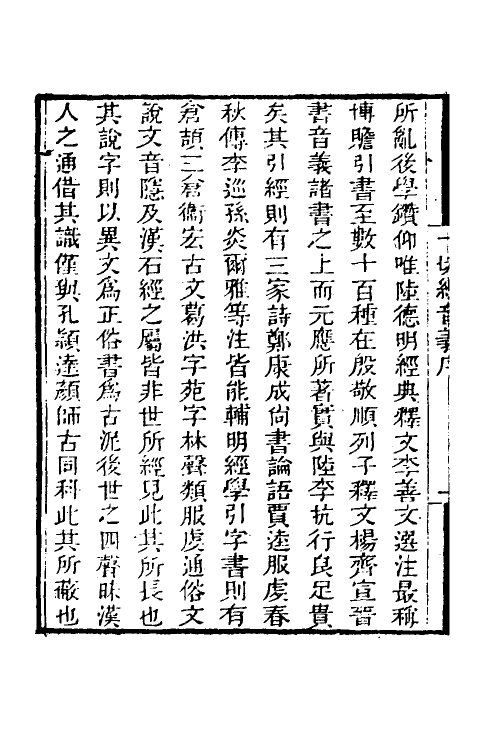 一切經音義序
一
所亂後學鑽仰唯陸德明經典釋文李善文選注最稱
博贍引書至數十百種在殷敬順列子釋文楊齊宣晉
書音義諸書之上而元應所著實與陸李抗行良足貴
矣其引經則有三家詩鄭康成尙書論語賈逵服虔春
秋傳李巡孫炎爾雅等注皆能輔明經學引字書則有
倉頡三倉衞宏古文葛洪字苑字林聲類服虔通俗文
說文音隱及漢石經之屬皆非世所經見此其所長也
其說字則以異文爲正俗書爲古泥後世之四聲昧漢
人之通借其識僅與孔穎達顏師古同科此其所蔽也